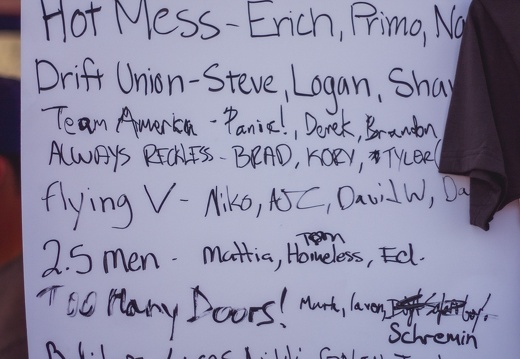 Hot Mess - Erich, Primo, No
Drift Union - Steve, Logan, Sha
Team America - Panic!, Derek, Brandon,
ALWAYS RECKLESS - BRAD, KORY, TYLER(
flying V - Niko, AJC, David W, Da
2.5 men - Mattia, Homeless, Ed.
Tom
Too Many Doors! Mark,
Schremin